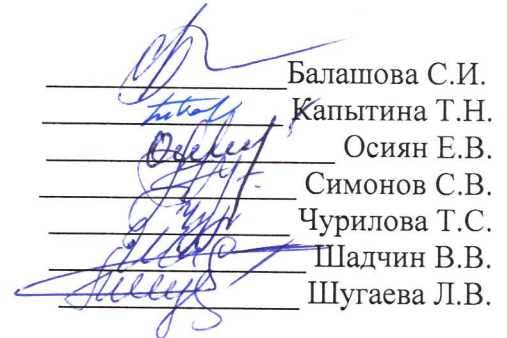 Балашова С.И.
Капытина Т.Н.
Осиян Е.В.
Симонов С.В.
Чурилова Т.С.
Шадчин В.В.
Шугаева Л.В.